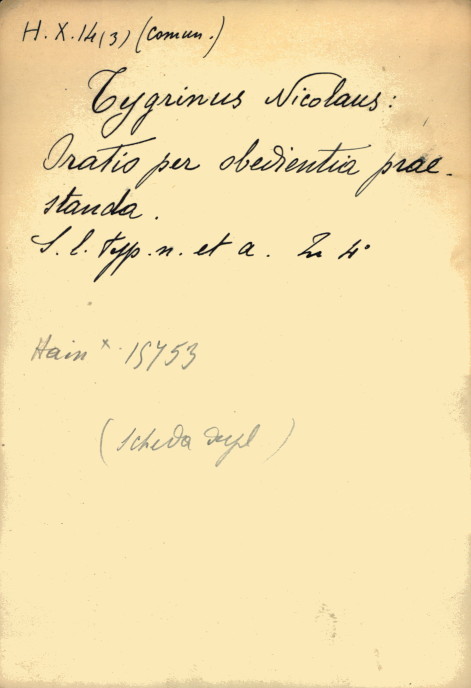 H. X. 14 (3) (Comun.)
Tygrinus Nicolaus:
Oratio per obedientia prae-
standa.
S. l. typ. n. et a. In 4°
Hain × 15753
(Scheda dupl)